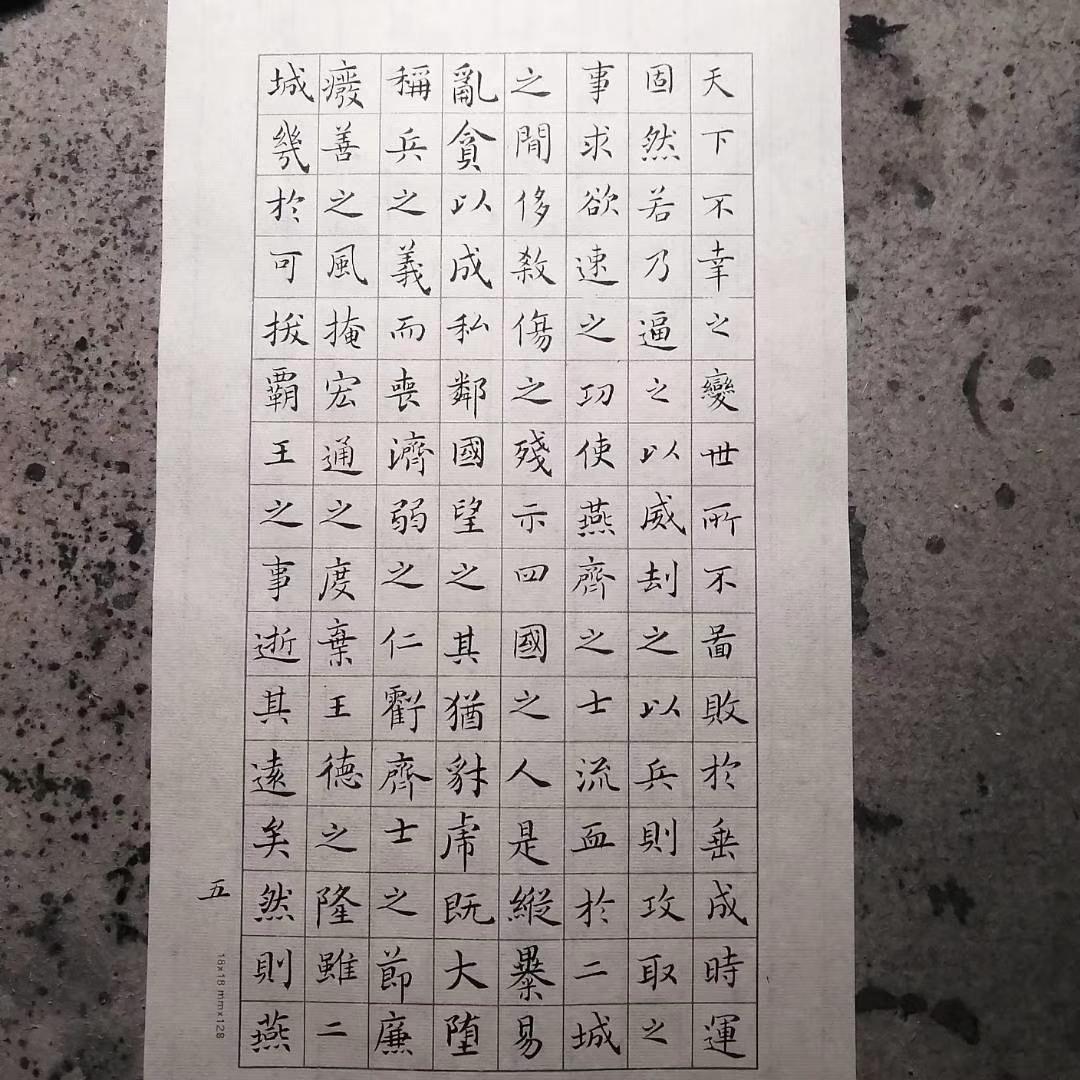 天下不幸之變世所不啚敗於垂成時運
固然若乃逼之以威刦之以兵則攻取之
事求欲速之功使燕齊之士流血於二城
之間侈殺傷之殘示四國之人是縱㬥易
亂貪以成私鄰國望之其猶豺虎既大墮
稱兵之義而喪濟弱之仁虧齊士之節廉
癈善之風掩宏通之度棄王德之隆雖二
城幾於可拔覇王之事逝其遠矣然則燕
五
18x18 mm×128